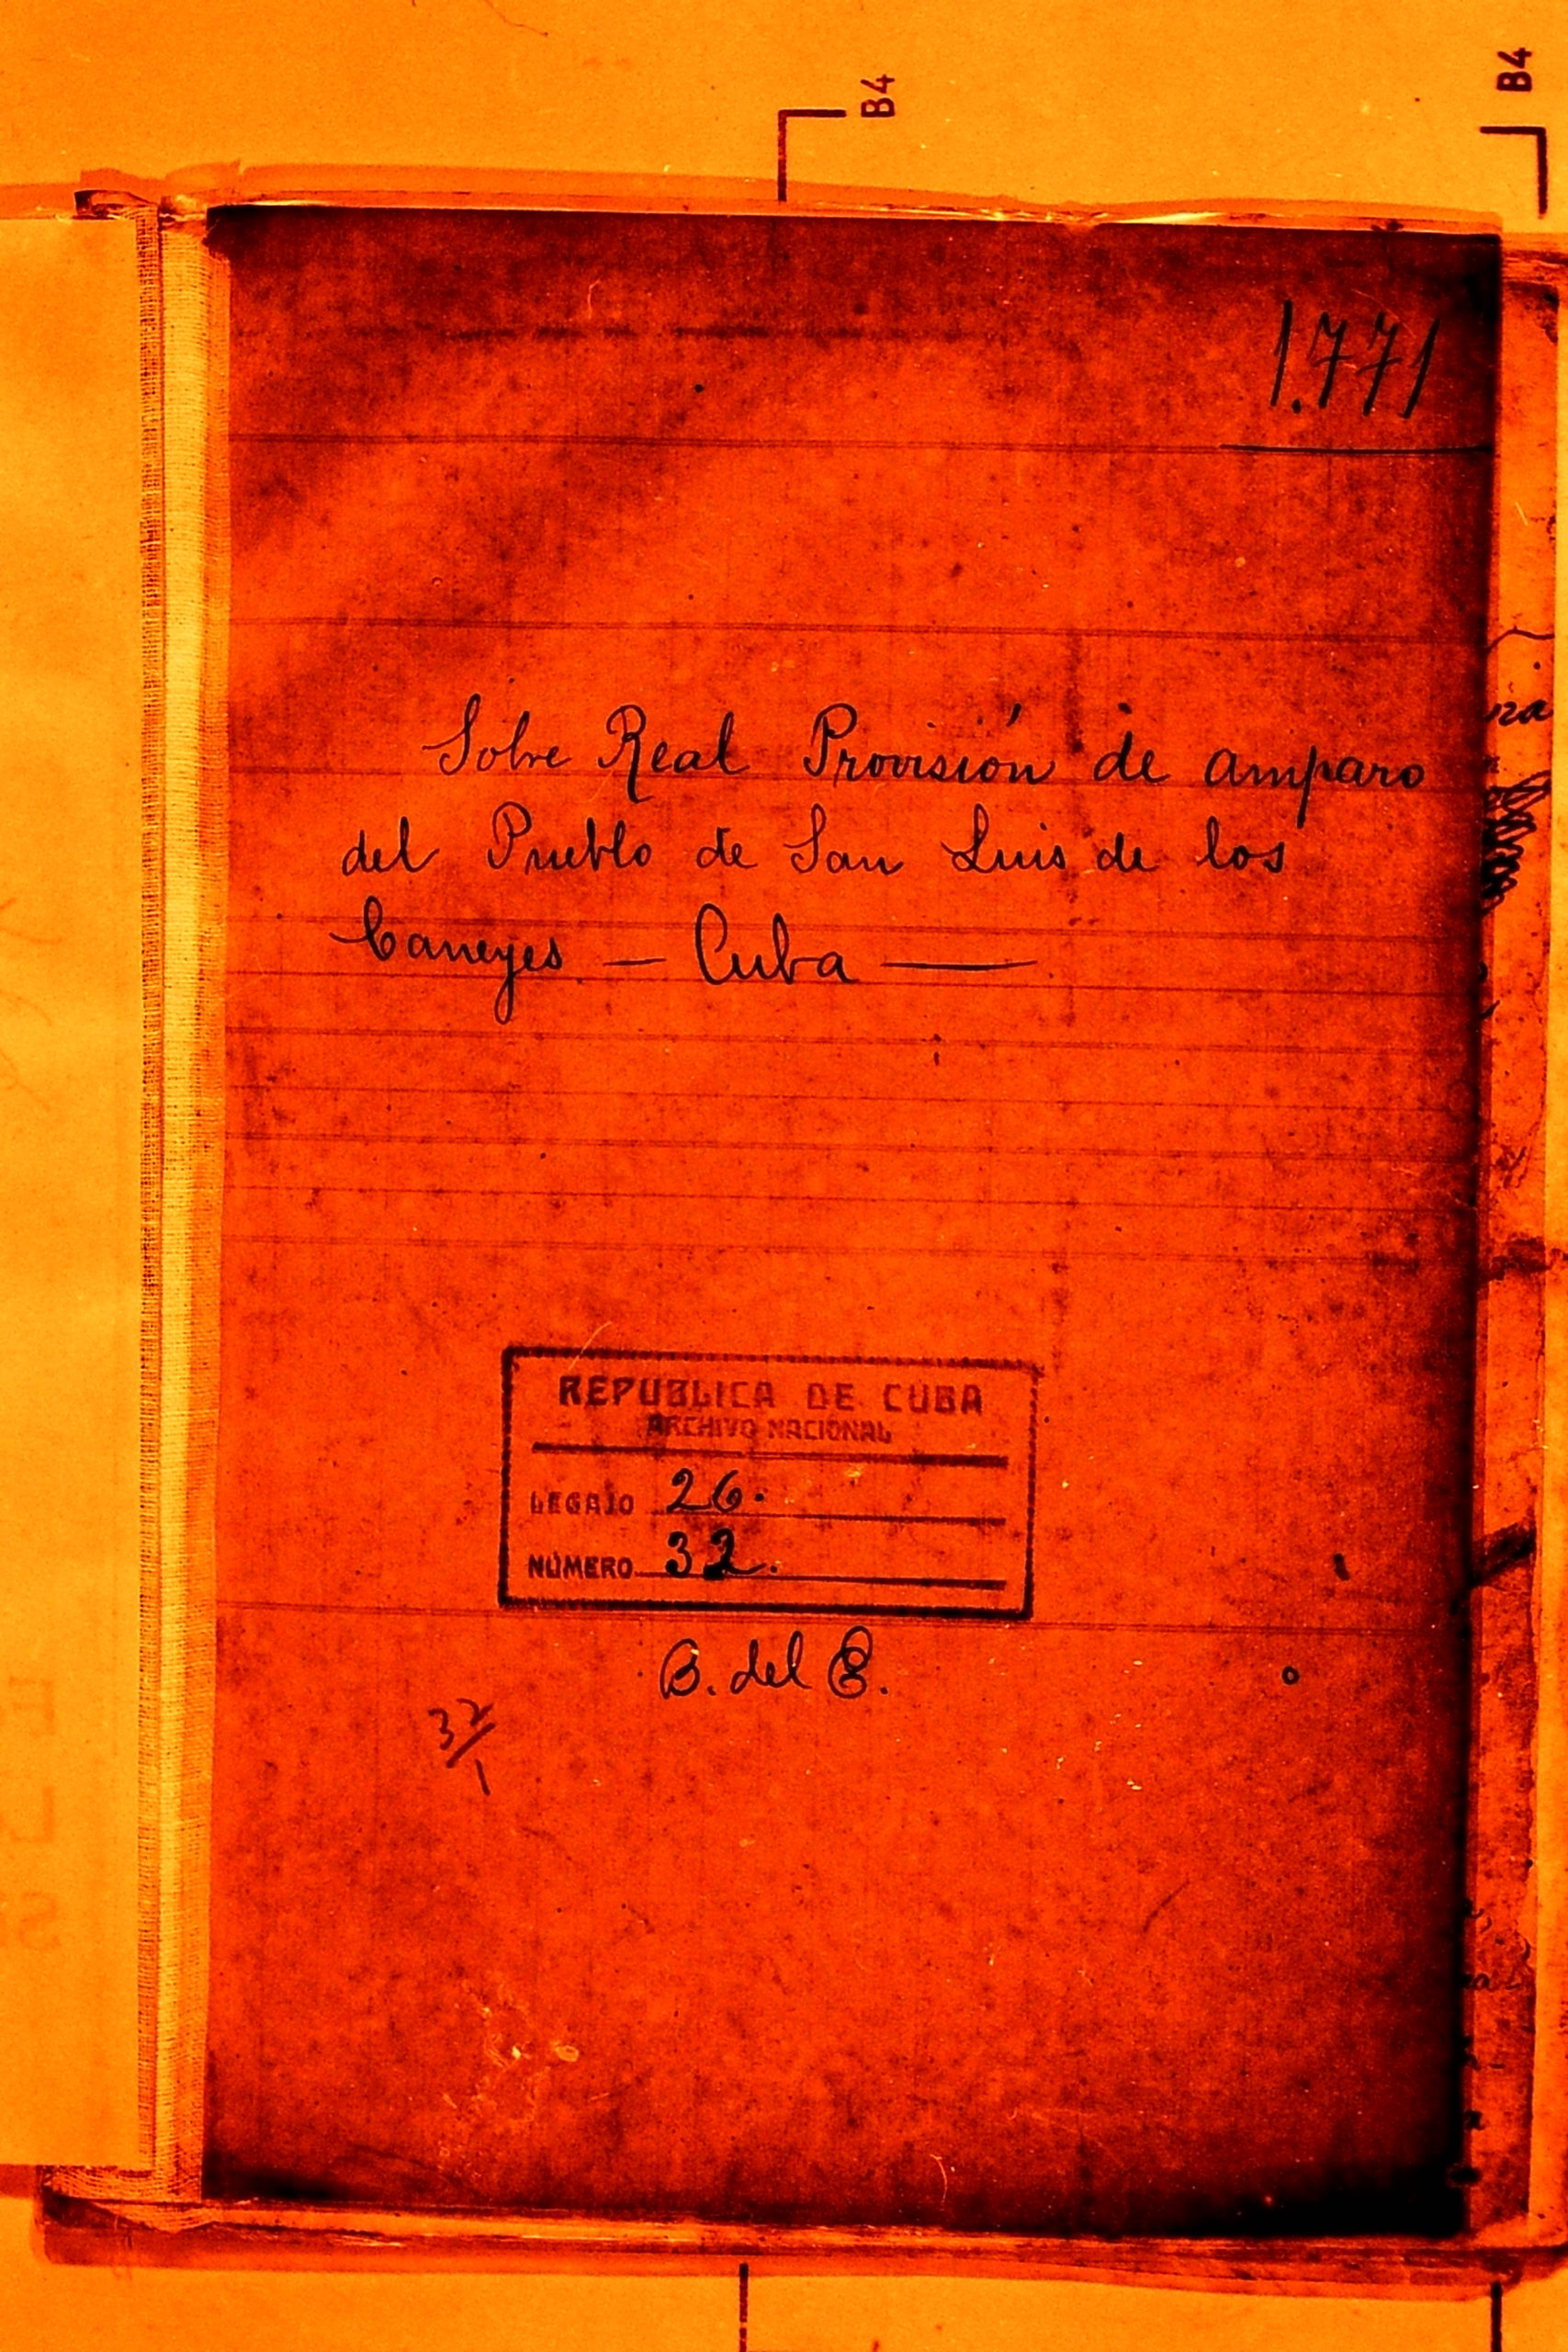 B4
B4
1.771
Sobre Real Provisión de amparo
del Pueblo de San Luis de los
Caneyes — Cuba —
REPUBLICA DE CUBA
ARCHIVO NACIONAL
LEGAJO 26.
NÚMERO 32.
B. del E.
32/1